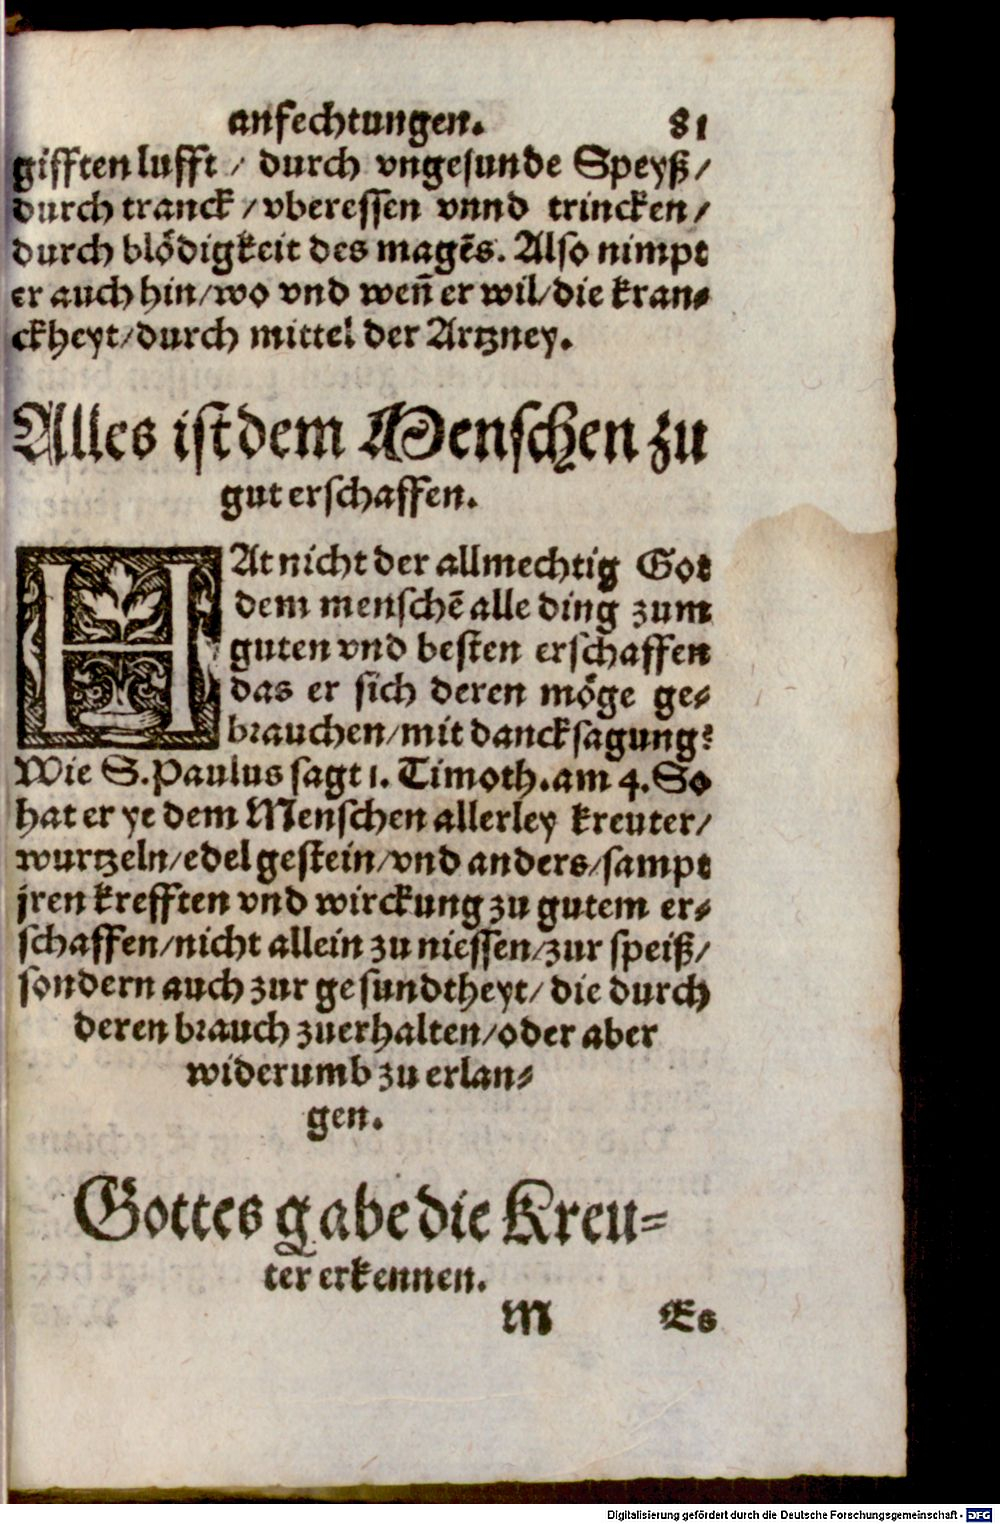 anfechtungen. 81
gifften lufft / durch vngesunde Speyß /
durch tranck / vberessen vnnd trincken /
durch blödigkeit des magẽs. Also nimpt
er auch hin / wo vnd weñ er wil / die kran⸗
ckheyt / durch mittel der Artzney.
Alles ist dem Menschen zu
gut erschaffen.
HAt nicht der allmechtig Got
dem menschẽ alle ding zum
guten vnd besten erschaffen
das er sich deren möge ge⸗
brauchen / mit dancksagung?
Wie S. Paulus sagt 1. Timoth. am 4. So
hat er ye dem Menschen allerley kreuter /
wurtzeln / edel gestein / vnd anders / sampt
jren krefften vnd wirckung zu gutem er⸗
schaffen / nicht allein zu niessen / zur speiß /
sondern auch zur gesundtheyt / die durch
deren brauch zuerhalten / oder aber
widerumb zu erlan⸗
gen.
Gottes gabe die Kreu⸗
ter erkennen.
M Es
Digitalisierung gefördert durch die Deutsche Forschungsgemeinschaft - DFG